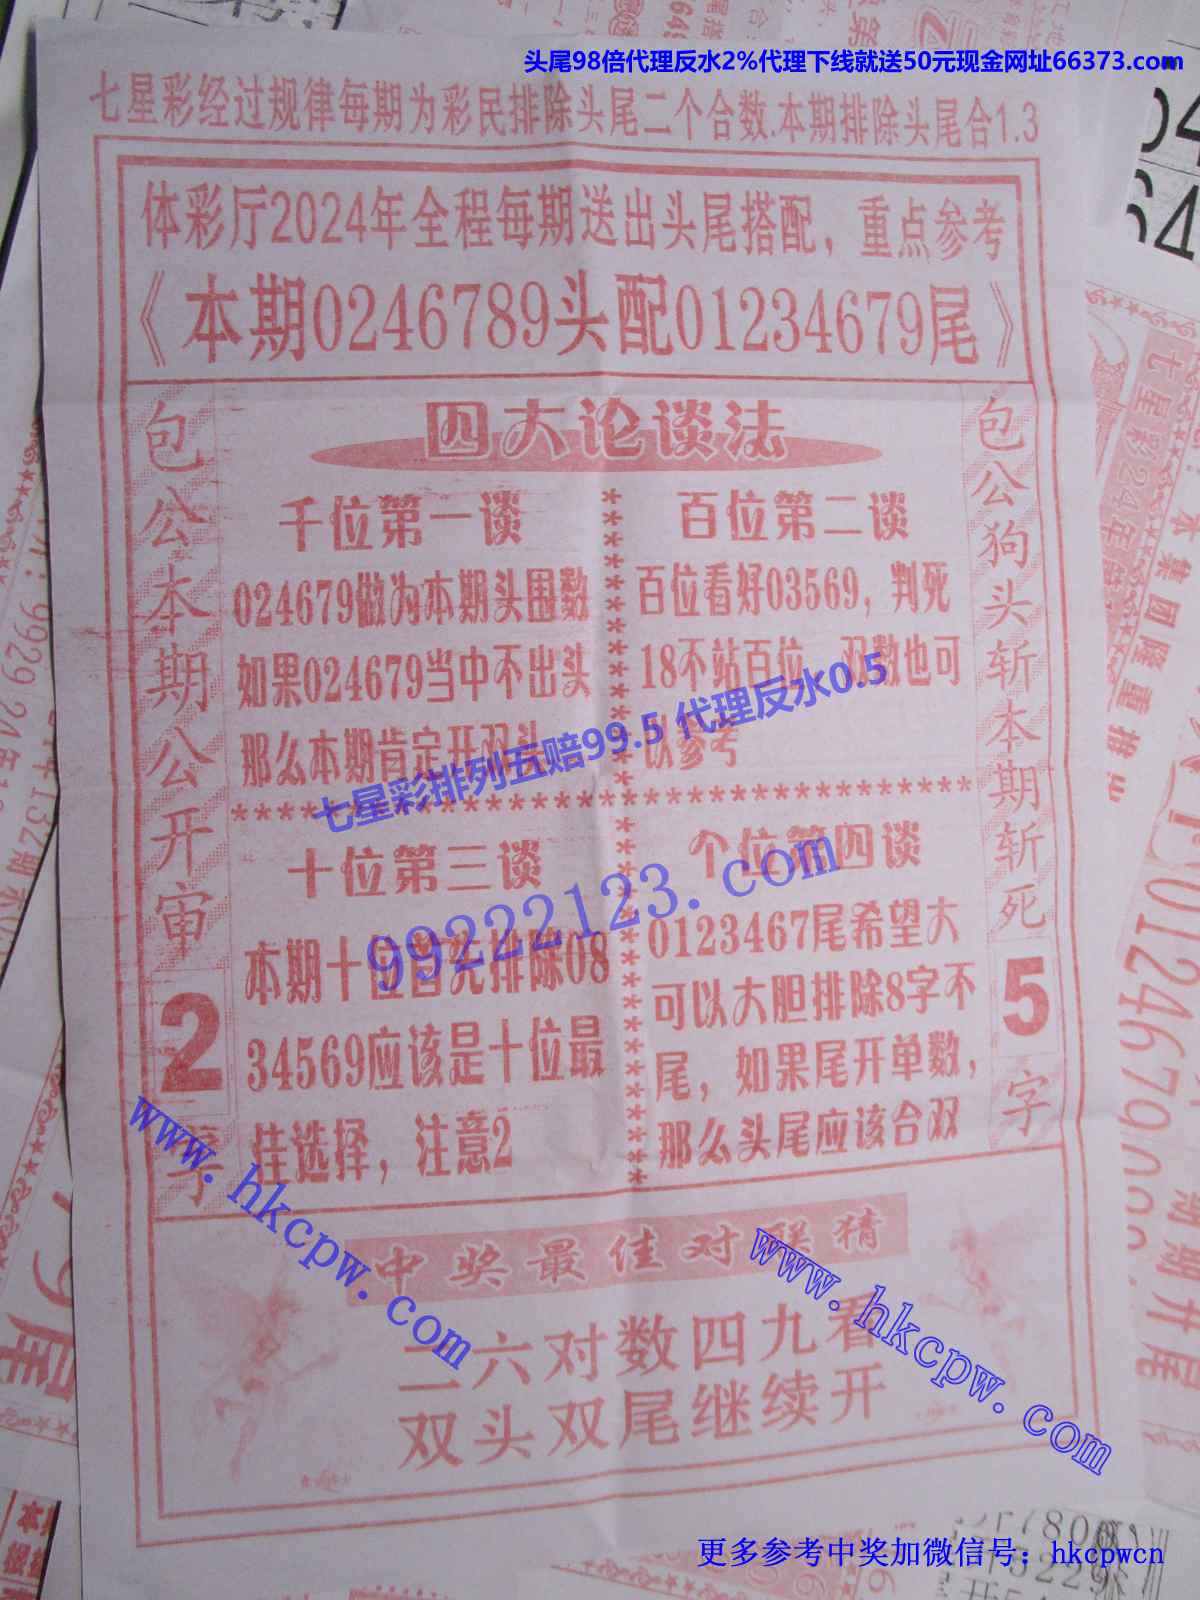 头尾98倍代理反水2%代理下线就送50元现金网址66373.com
七星彩经过规律每期为彩民排除头尾二个合数.本期排除头尾合1.3
体彩厅2024年全程每期送出头尾搭配，重点参考
《本期0246789头配01234679尾》
包公本期公开审
2
字
四大论谈法
千位第一谈
024679做为本期头围数
如果024679当中不出头
那么本期肯定开双头
百位第二谈
百位看好03569，判死
18不站百位，双数也可
以参考
七星彩排列五赔99.5 代理反水0.5
********************************
十位第三谈
本期十位首先排除08
34569应该是十位最
佳选择，注意2
99222123.com
个位第四谈
0123467尾希望大
可以大胆排除8字不
尾，如果尾开单数，
那么头尾应该合双
包公狗头斩本期斩死
5
字
www.hkcpw.com
中奖最佳对联猜
www.hkcpw.com
二六对数四九看
双头双尾继续开
更多参考中奖加微信号：hkcpwcn
七星彩24年
本集团隆重推出
新期开尾